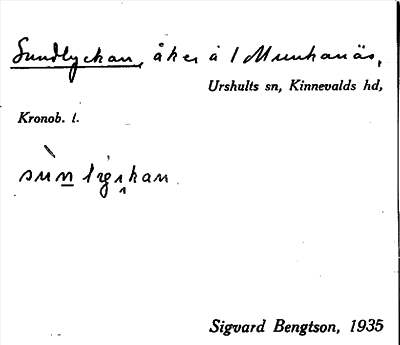 Sundlyckan, åker å 1 Munkanäs,
Urshults sn, Kinnevalds hd,
Kronob. l.
Sigvard Bengtson, 1935